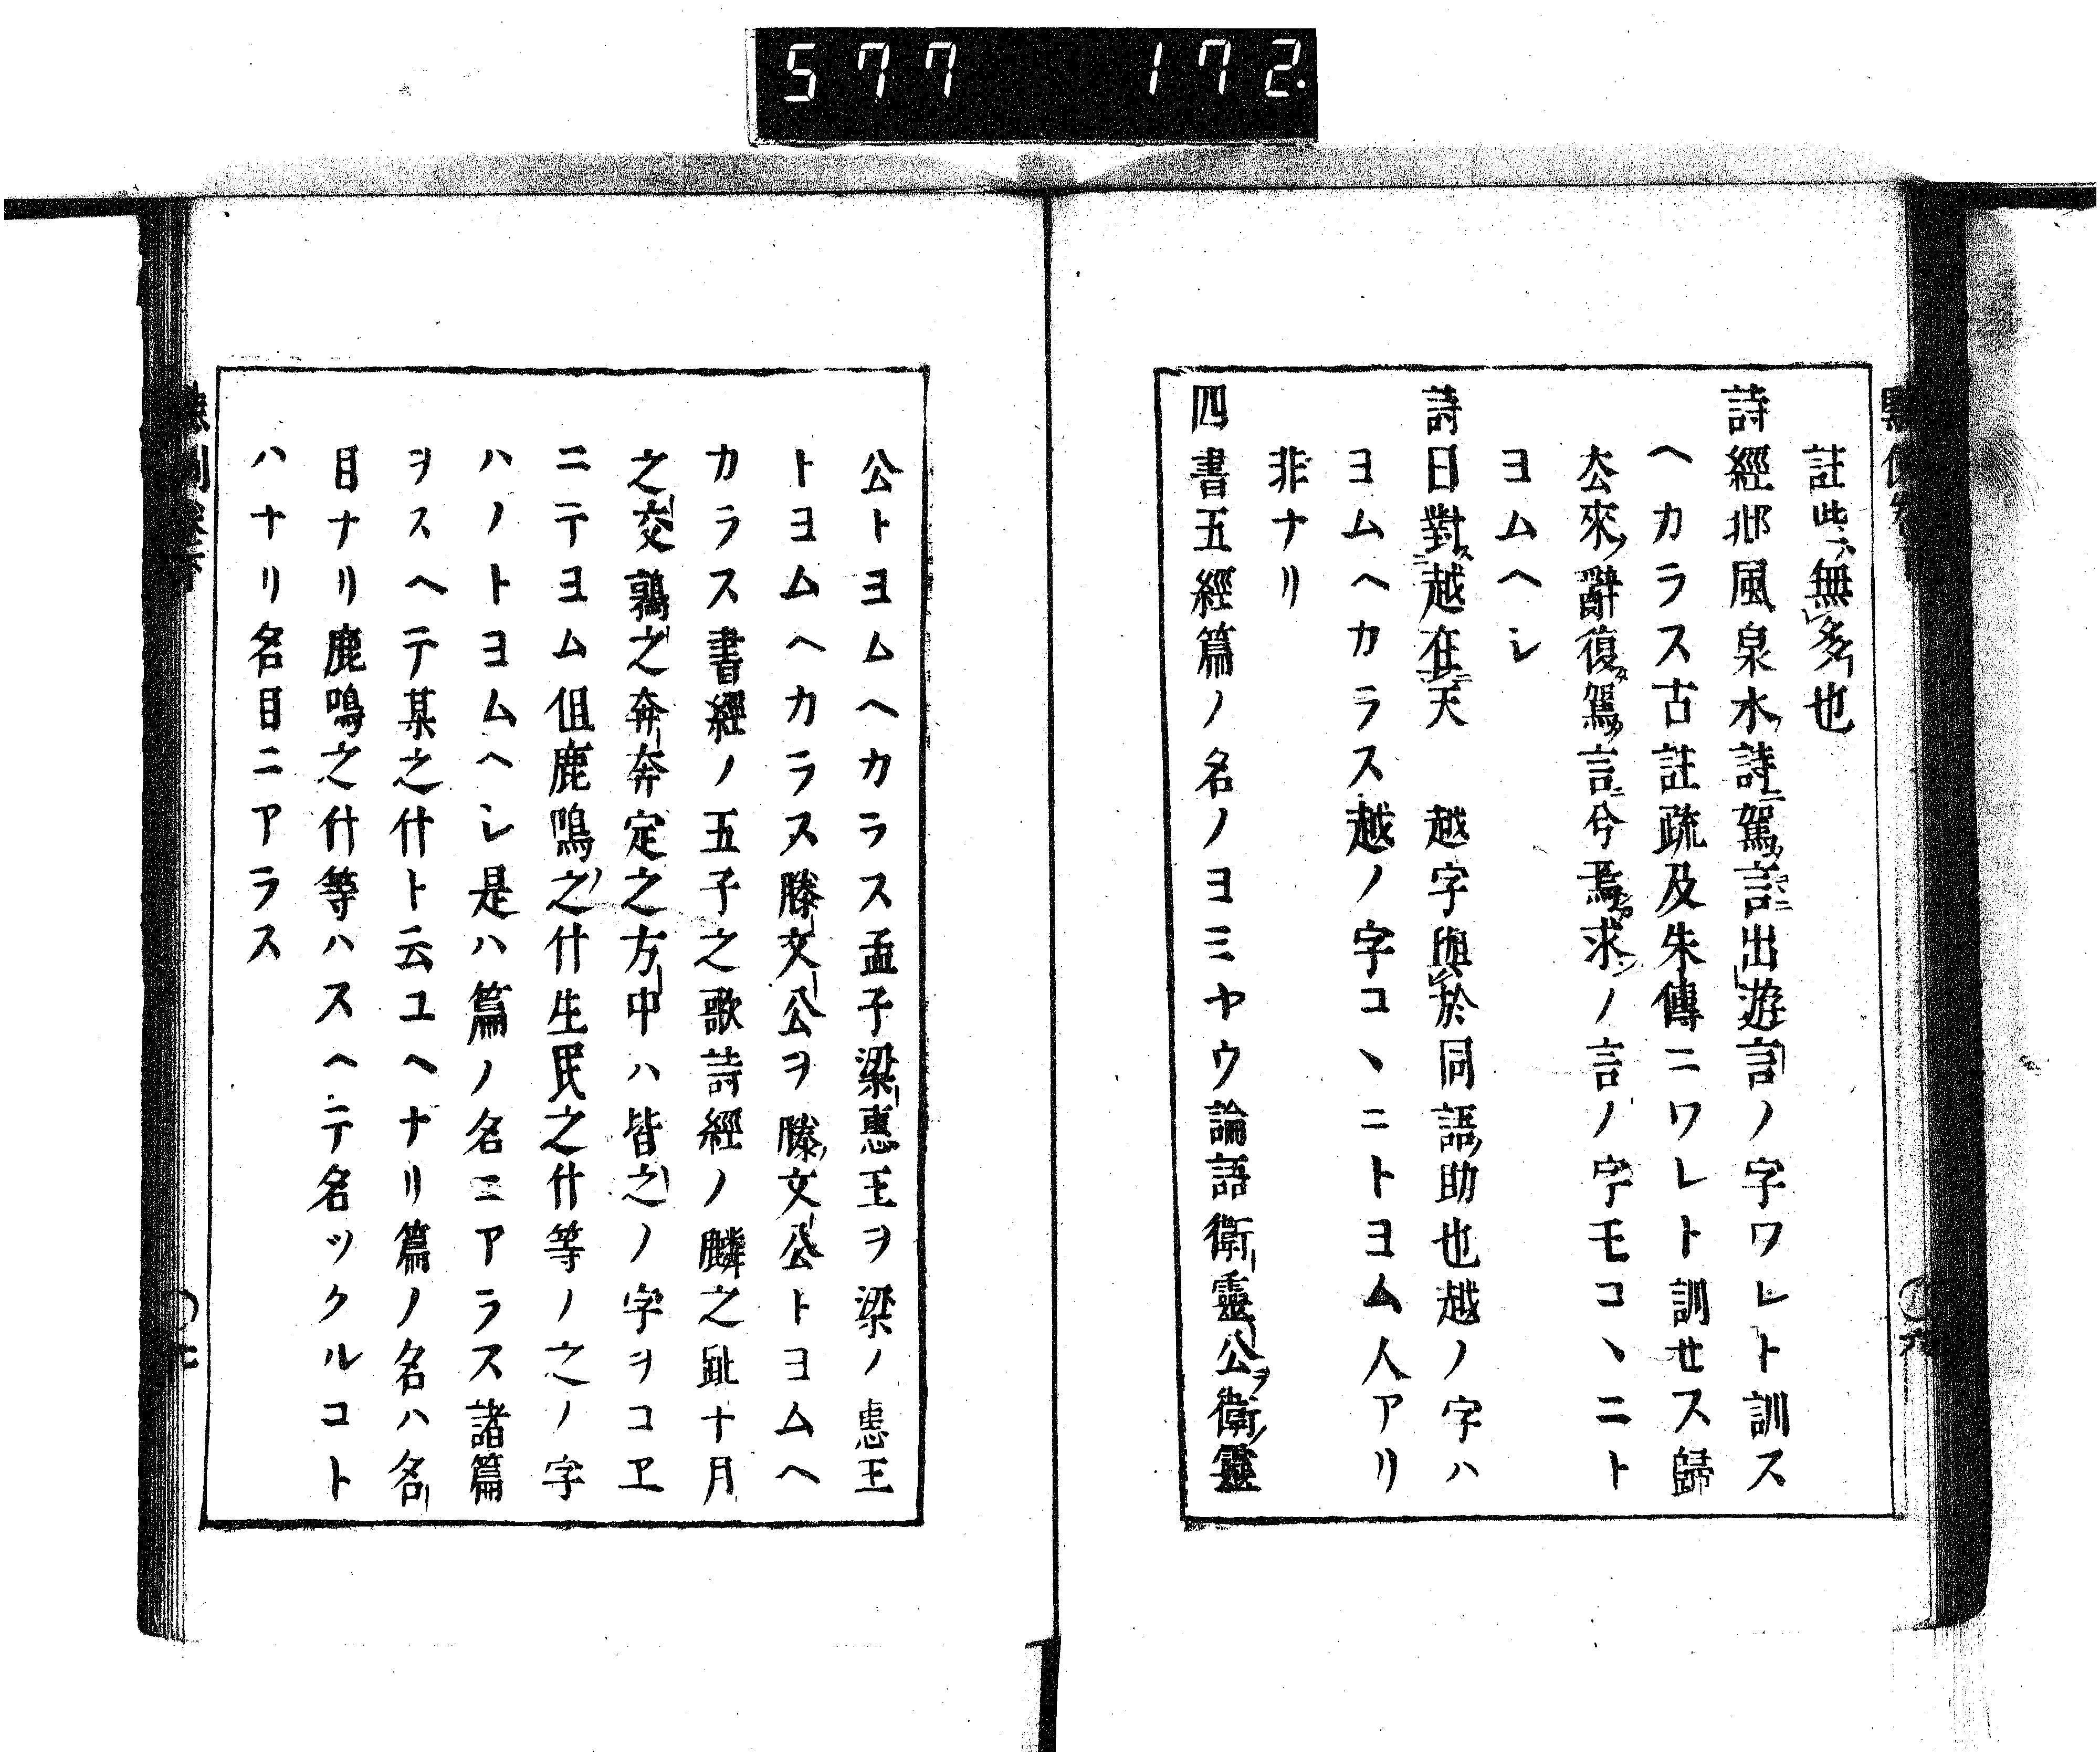 577 172.
註些無多也
詩經邶風泉水詩駕言出遊言ノ字ワレト訓ス
ヘカラス古註疏及朱傳ニワレト訓せス歸
去來辭復駕言兮焉求ノ言ノ字モコヽニト
ヨムヘシ
詩曰對越在天 越字與於同語助也越ノ字ハ
ヨムヘカラス越ノ字コヽニトヨム人アリ
非ナリ
四書五經篇ノ名ノヨミヤウ論語衛靈公ヲ衛靈
公トヨムヘカラス孟子梁惠王ヲ梁ノ惠王
トヨムヘカラス滕文公ヲ滕文公トヨムヘ
カラス書經ノ五子之歌詩經ノ麟之趾十月
之交鶉之奔奔定之方中ハ皆之ノ字ヲコヱ
ニテヨム但鹿鳴之什生民之什等ノ之ノ字
ハノトヨムヘシ是ハ篇ノ名ニアラス諸篇
ヲスヘテ某之什ト云ユヘナリ篇ノ名ハ名
目ナリ鹿鳴之什等ハスヘテ名ツクルコト
ハナリ名目ニアラス